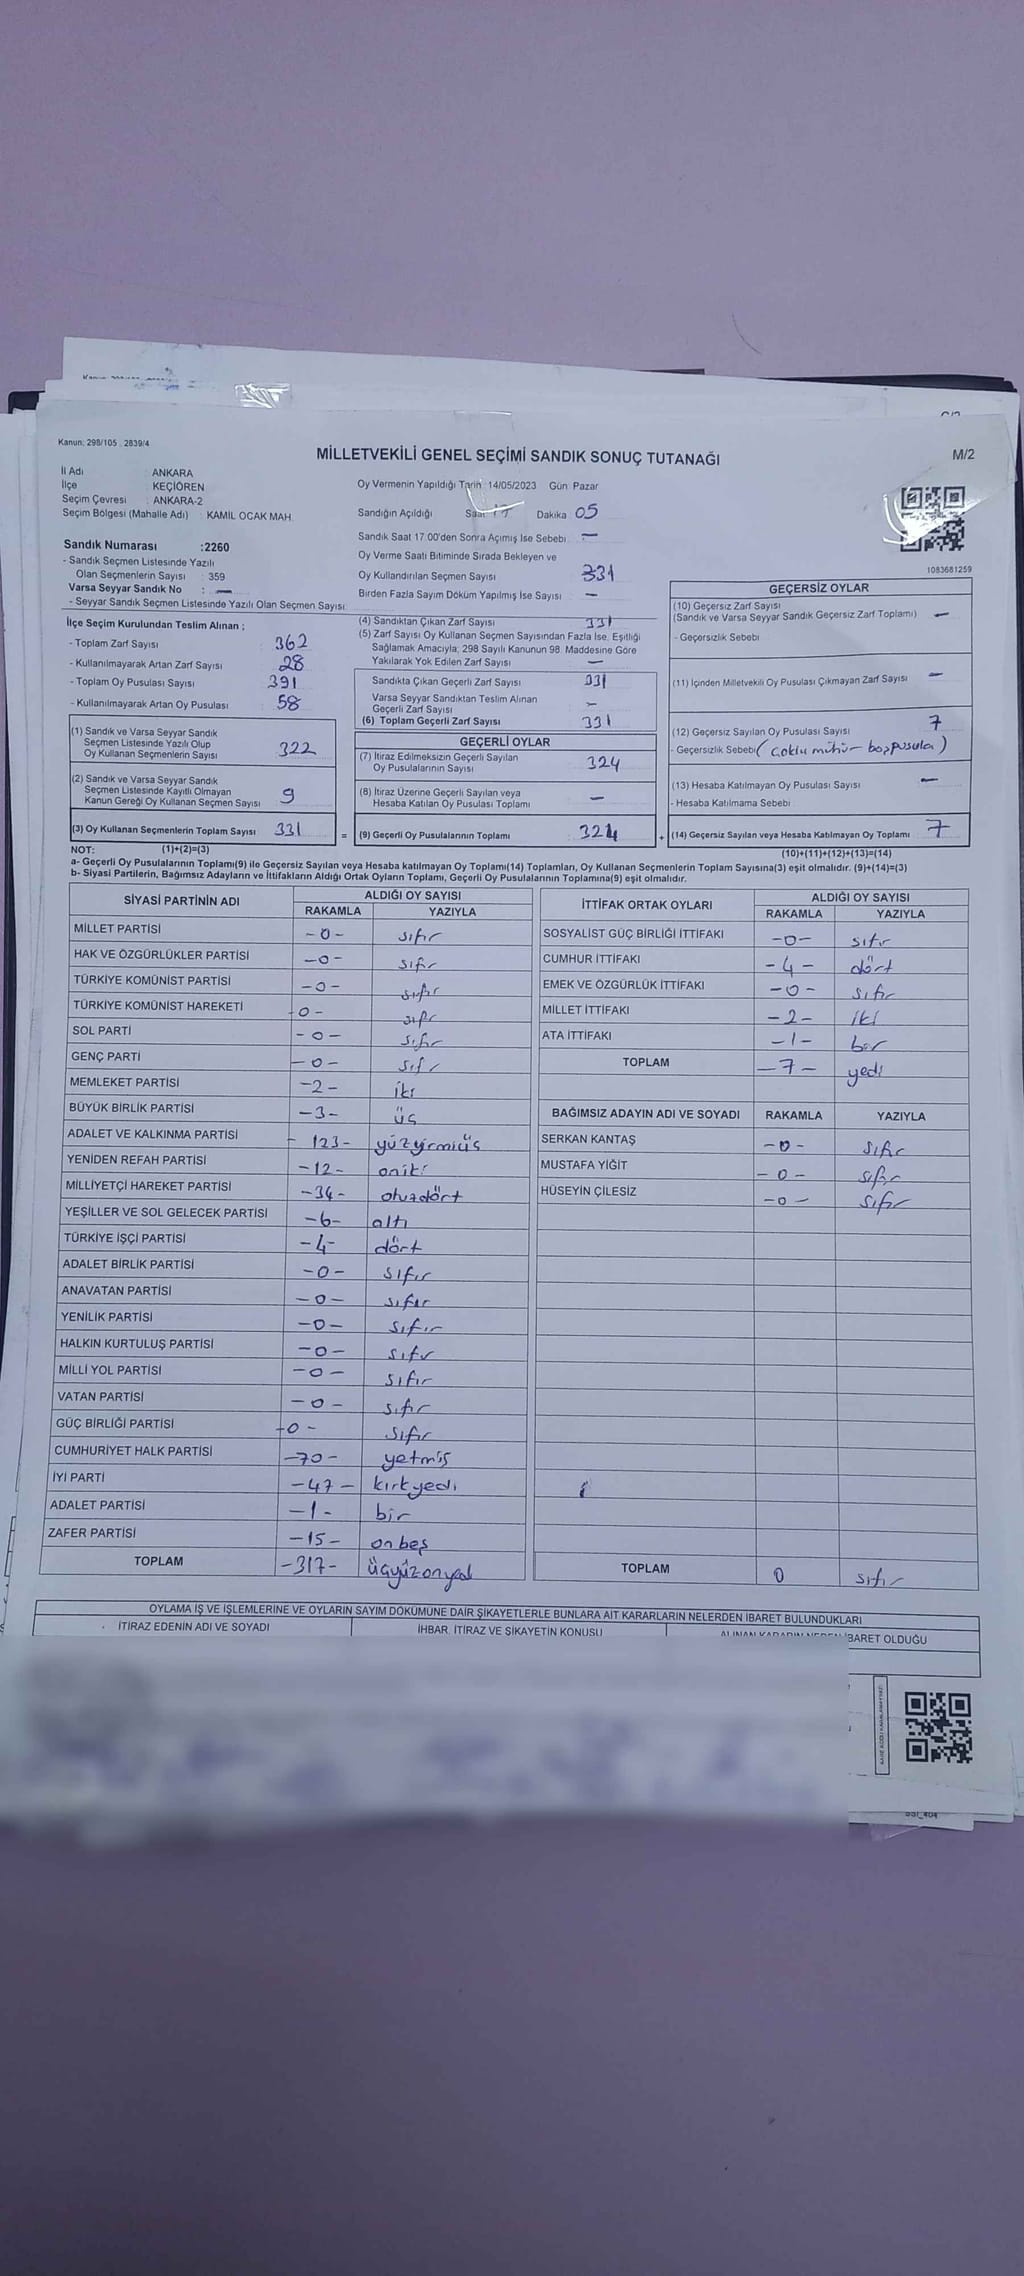 Kanun: 298/105 . 2839/4
MİLLETVEKİLİ GENEL SEÇİMİ SANDIK SONUÇ TUTANAĞI
M/2
İl Adı ANKARA
İlçe KEÇİÖREN
Seçim Çevresi : ANKARA-2
Seçim Bölgesi (Mahalle Adı) : KAMİL OCAK MAH.
Oy Vermenin Yapıldığı Tarih 14/05/2023 Gün: Pazar
Sandığın Açıldığı Saat 17 Dakika 05
Sandık Saat 17.00'den Sonra Açımış İse Sebebi -
Oy Verme Saati Bitiminde Sırada Bekleyen ve
Oy Kullandırılan Seçmen Sayısı 331
Birden Fazla Sayım Döküm Yapılmış İse Sayısı -
1083681259
Sandık Numarası :2260
- Sandık Seçmen Listesinde Yazılı
Olan Seçmenlerin Sayısı : 359
Varsa Seyyar Sandık No : -
- Seyyar Sandık Seçmen Listesinde Yazılı Olan Seçmen Sayısı:
İlçe Seçim Kurulundan Teslim Alınan ;
- Toplam Zarf Sayısı 362
- Kullanılmayarak Artan Zarf Sayısı 28
- Toplam Oy Pusulası Sayısı 391
- Kullanılmayarak Artan Oy Pusulası 58
(1) Sandık ve Varsa Seyyar Sandık
Seçmen Listesinde Yazılı Olup
Oy Kullanan Seçmenlerin Sayısı 322
(2) Sandık ve Varsa Seyyar Sandık
Seçmen Listesinde Kayıtlı Olmayan
Kanun Gereği Oy Kullanan Seçmen Sayısı 9
(3) Oy Kullanan Seçmenlerin Toplam Sayısı 331 =
(4) Sandıktan Çıkan Zarf Sayısı 331
(5) Zarf Sayısı Oy Kullanan Seçmen Sayısından Fazla İse, Eşitliği
Sağlamak Amacıyla; 298 Sayılı Kanunun 98. Maddesine Göre
Yakılarak Yok Edilen Zarf Sayısı -
Sandıkta Çıkan Geçerli Zarf Sayısı 331
Varsa Seyyar Sandıktan Teslim Alınan
Geçerli Zarf Sayısı -
(6) Toplam Geçerli Zarf Sayısı 331
GEÇERLİ OYLAR
(7) İtiraz Edilmeksizin Geçerli Sayılan
Oy Pusulalarının Sayısı 324
(8) İtiraz Üzerine Geçerli Sayılan veya
Hesaba Katılan Oy Pusulası Toplamı -
(9) Geçerli Oy Pusulalarının Toplamı 324 +
GEÇERSİZ OYLAR
(10) Geçersiz Zarf Sayısı
(Sandık ve Varsa Seyyar Sandık Geçersiz Zarf Toplamı) -
- Geçersizlik Sebebi
(11) İçinden Milletvekili Oy Pusulası Çıkmayan Zarf Sayısı -
(12) Geçersiz Sayılan Oy Pusulası Sayısı 7
- Geçersizlik Sebebi ( çoklu mühür boş pusula )
(13) Hesaba Katılmayan Oy Pusulası Sayısı -
- Hesaba Katılmama Sebebi
(14) Geçersiz Sayılan veya Hesaba Katılmayan Oy Toplamı 7
NOT: (1)+(2)=(3)
(10)+(11)+(12)+(13)=(14)
a- Geçerli Oy Pusulalarının Toplamı(9) ile Geçersiz Sayılan veya Hesaba katılmayan Oy Toplamı(14) Toplamları, Oy Kullanan Seçmenlerin Toplam Sayısına(3) eşit olmalıdır. (9)+(14)=(3)
b- Siyasi Partilerin, Bağımsız Adayların ve İttifakların Aldığı Ortak Oyların Toplamı, Geçerli Oy Pusulalarının Toplamına(9) eşit olmalıdır.
SİYASİ PARTİNİN ADI
ALDIĞI OY SAYISI
RAKAMLA YAZIYLA
MİLLET PARTİSİ -0- sıfır
HAK VE ÖZGÜRLÜKLER PARTİSİ -0- sıfır
TÜRKİYE KOMÜNİST PARTİSİ -0- sıfır
TÜRKİYE KOMÜNİST HAREKETİ -0- sıfır
SOL PARTİ -0- sıfır
GENÇ PARTİ -0- sıfır
MEMLEKET PARTİSİ -2- iki
BÜYÜK BİRLİK PARTİSİ -3- üç
ADALET VE KALKINMA PARTİSİ - 123- yüzyirmiüç
YENİDEN REFAH PARTİSİ -12- oniki
MİLLİYETÇİ HAREKET PARTİSİ -34- otuzdört
YEŞİLLER VE SOL GELECEK PARTİSİ -6- altı
TÜRKİYE İŞÇİ PARTİSİ -4- dört
ADALET BİRLİK PARTİSİ -0- sıfır
ANAVATAN PARTİSİ -0- sıfır
YENİLİK PARTİSİ -0- sıfır
HALKIN KURTULUŞ PARTİSİ -0- sıfır
MİLLİ YOL PARTİSİ -0- sıfır
VATAN PARTİSİ -0- sıfır
GÜÇ BİRLİĞİ PARTİSİ -0- sıfır
CUMHURİYET HALK PARTİSİ -70- yetmiş
İYİ PARTİ -47- kırkyedi
ADALET PARTİSİ -1- bir
ZAFER PARTİSİ -15- onbeş
TOPLAM -317- üçyüzonyedi
İTTİFAK ORTAK OYLARI
ALDIĞI OY SAYISI
RAKAMLA YAZIYLA
SOSYALİST GÜÇ BİRLİĞİ İTTİFAKI -0- sıfır
CUMHUR İTTİFAKI -4- dört
EMEK VE ÖZGÜRLÜK İTTİFAKI -0- sıfır
MİLLET İTTİFAKI -2- iki
ATA İTTİFAKI -1- bir
TOPLAM -7- yedi
BAĞIMSIZ ADAYIN ADI VE SOYADI RAKAMLA YAZIYLA
SERKAN KANTAŞ -0- sıfır
MUSTAFA YİĞİT -0- sıfır
HÜSEYİN ÇİLESİZ -0- sıfır
TOPLAM 0 sıfır
OYLAMA İŞ VE İŞLEMLERİNE VE OYLARIN SAYIM DÖKÜMÜNE DAİR ŞİKAYETLERLE BUNLARA AİT KARARLARIN NELERDEN İBARET BULUNDUKLARI
İTİRAZ EDENİN ADI VE SOYADI
İHBAR, İTİRAZ VE ŞİKAYETİN KONUSU
ALINAN KARARIN NEDEN İBARET OLDUĞU